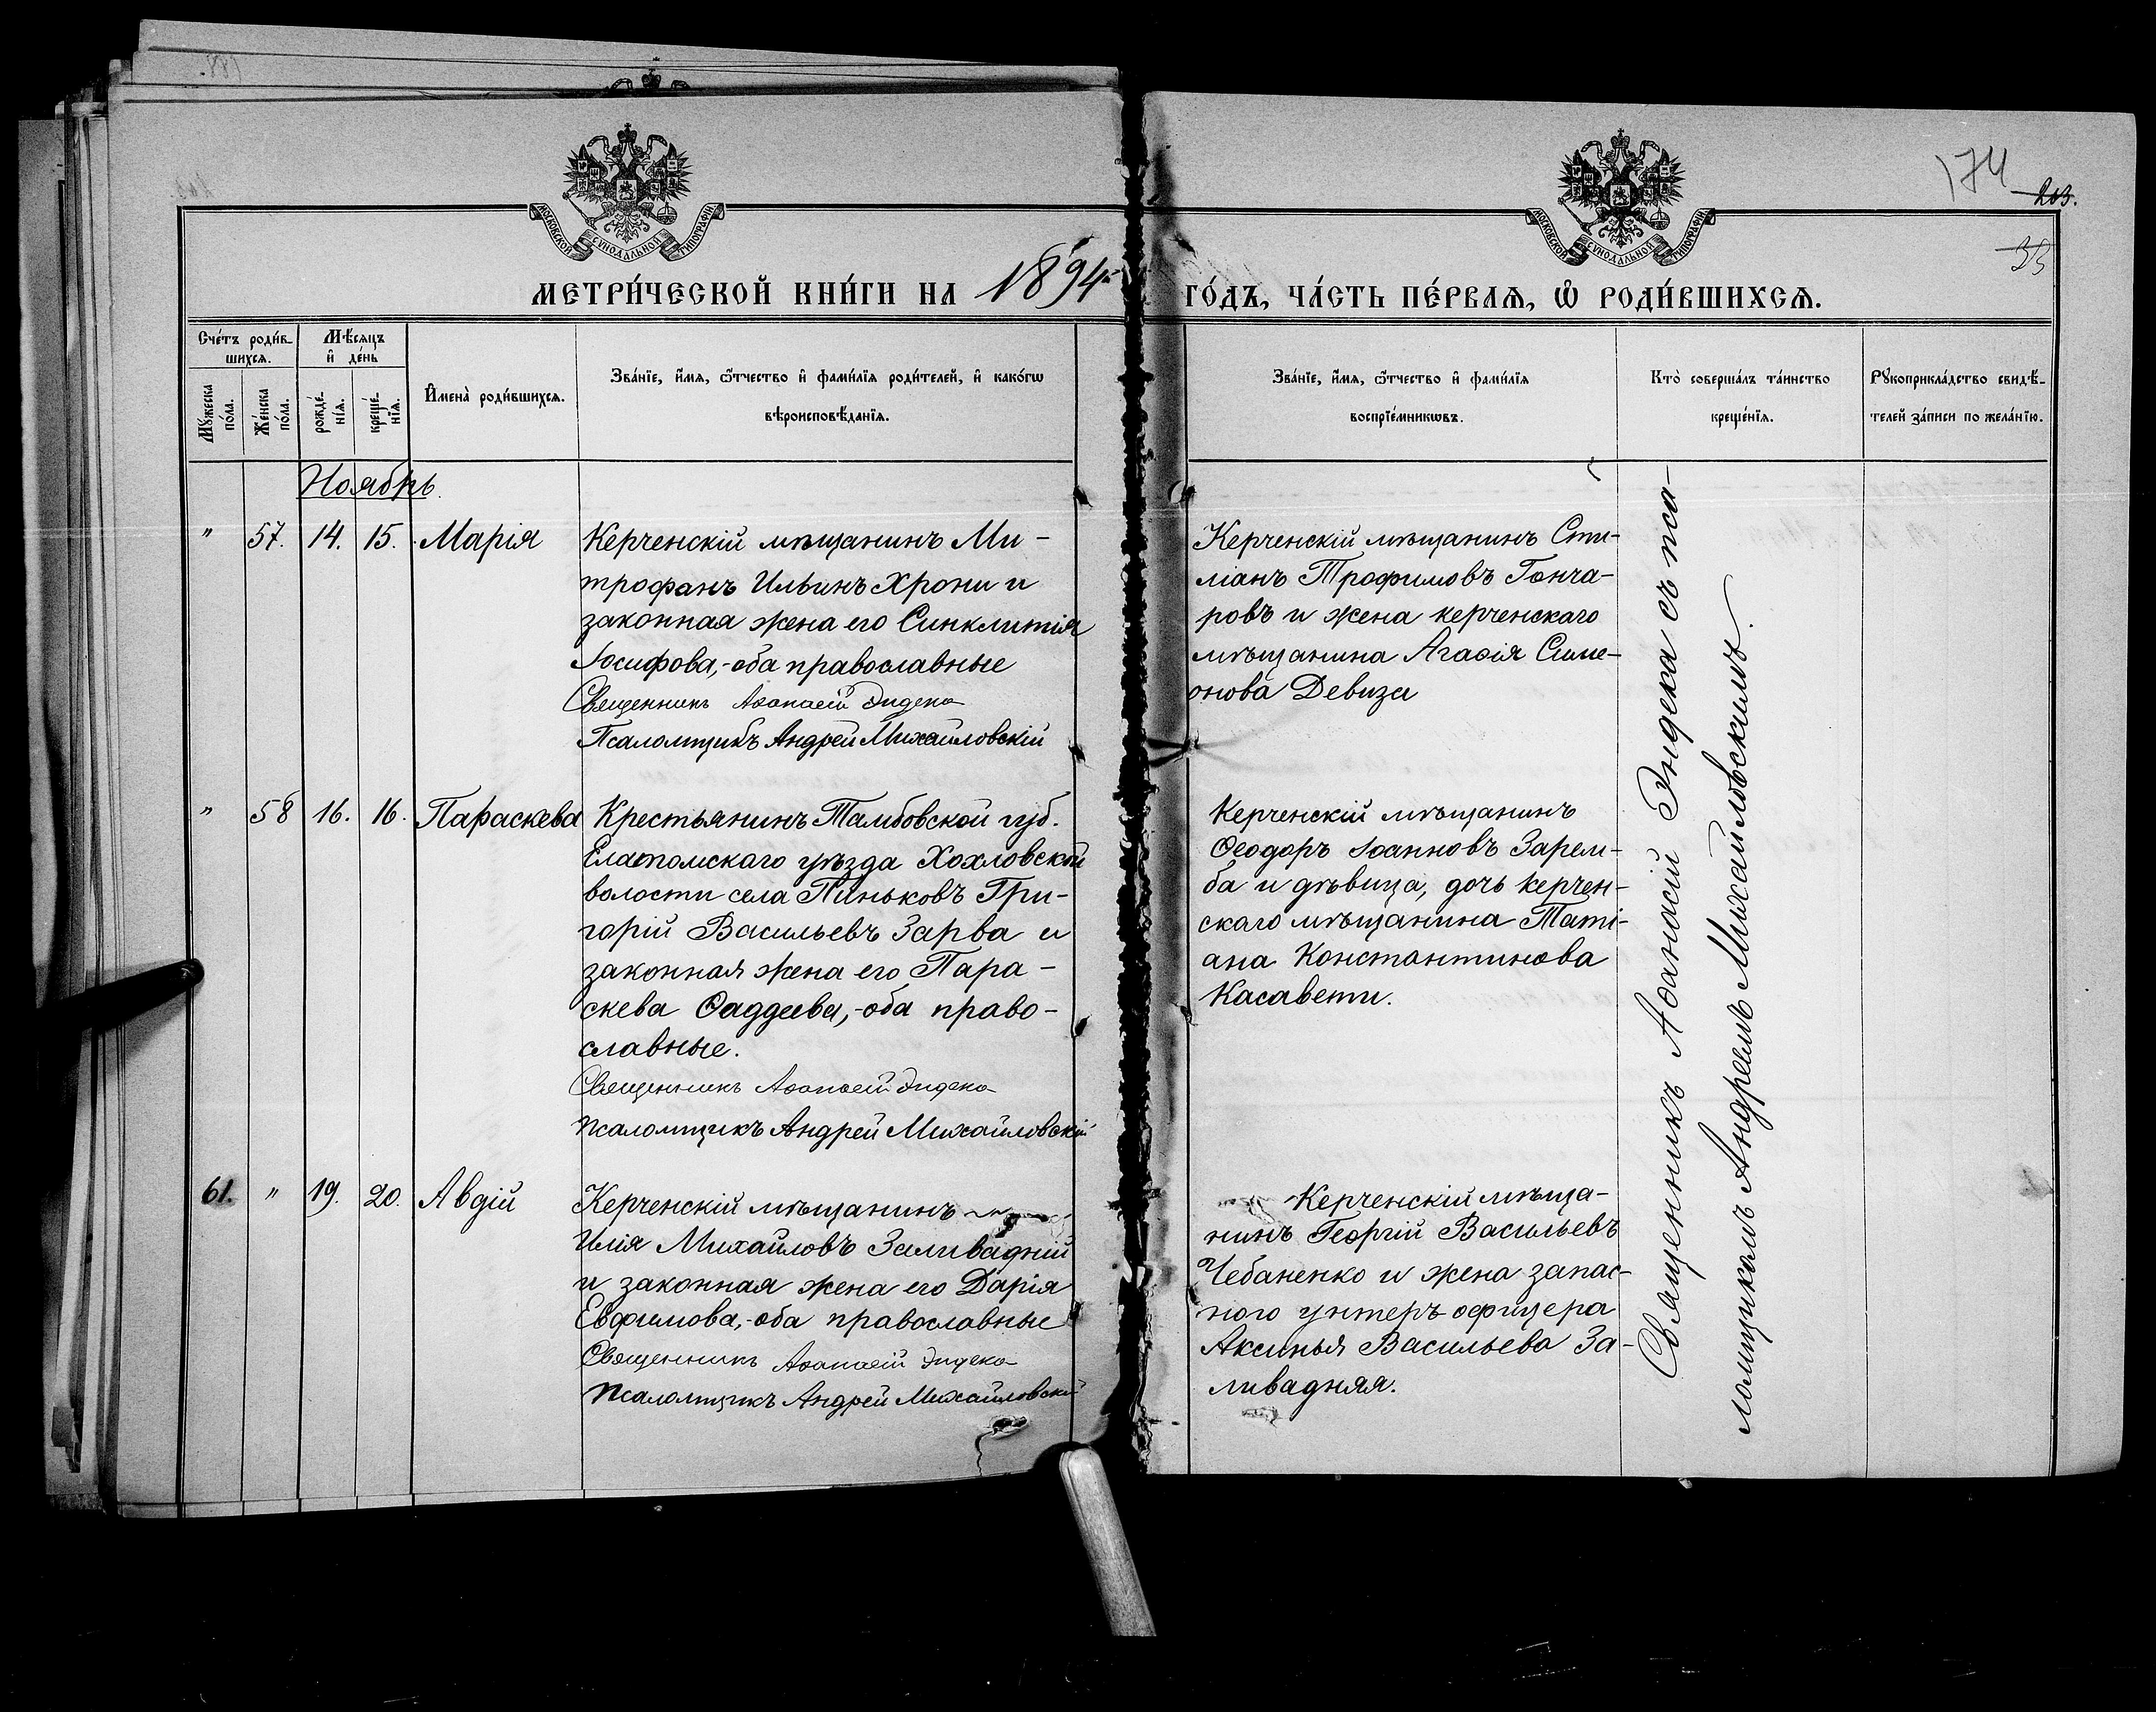 174
203.
33
МОСКОВСКОЙ СѴНОДАЛЬНОЙ ТИПОГРАФІИ
МОСКОВСКОЙ СѴНОДАЛЬНОЙ ТИПОГРАФІИ
МЕТРИ́ЧЕСКОЙ КНИ́ГИ НА 1894 ГО́ДЪ, ЧА́СТЬ ПЕ́РВАѦ, Ѽ РОДИ́ВШИХСѦ.
Сче́тъ роди́в-
шихсѧ.
Мꙋжеска по́ла.
Же́нска по́ла.
Мѣ́сѧцъ
и҆ де́нь
рожде́-
нїѧ.
креще́-
нїѧ.
И҆мена̀ роди́вшихсѧ.
Зва́нїе, и҆́мѧ, ѻ҆́тчество и҆ фами́лїѧ роди́телей, и҆ како́гѡ
вѣроисповѣ́данїѧ.
Зва́нїе, и҆́мѧ, ѻ҆́тчество и҆ фами́лїѧ
воспрїе́мникѡвъ.
Кто̀ соверша́лъ та́инство
креще́нїѧ.
Рꙋкоприкла́дство свидѣ́-
телей за́писи по жела́нїю.
Ноябрь.
" 57. 14. 15. Марія
Керченскій мѣщанинъ Ми-
трофанъ Ильинъ Хрони и
законная жена его Синклитія
Іосифова,-оба православные
Священникъ Аѳанасій Эндека
Псаломщикъ Андрей Михайловскій
Керченскій мѣщанинъ Сти-
ліанъ Трофимовъ Гонча-
ровъ и жена керченскаго
мѣщанина Агаѳія Симе-
онова Девиза
" 58 16. 16. Параскева
Крестьянинъ Тамбовской губ.
Елатомскаго уѣзда Хохловской
волости села Пиньковъ Гри-
горій Васильевъ Зарва и
законная жена его Пара-
скева Ѳаддеева,-оба право-
славные.
Священникъ Аѳанасій Эндека
Псаломщикъ Андрей Михайловскій
Керченскій мѣщанинъ
Ѳеодоръ Іоанновъ Зарем-
ба и дѣвица, дочь керчен-
скаго мѣщанина Таті-
ана Константинова
Касавети.
61. " 19. 20. Авдій
Керченскій мѣщанинъ
Илія Михайловъ Заливадній
и законная жена его Дарія
Евфимова,-оба православные
Священникъ Аѳанасій Эндека
Псаломщикъ Андрей Михайловскій
Керченскій мѣща-
нинъ Георгій Васильевъ
Чебаненко и жена запас-
ного унтеръ офицера
Аксинья Васильева За-
ливадняя.
Священникъ Аѳанасій Эндека съ пса-
ломщикомъ Андреемъ Михайловскимъ.